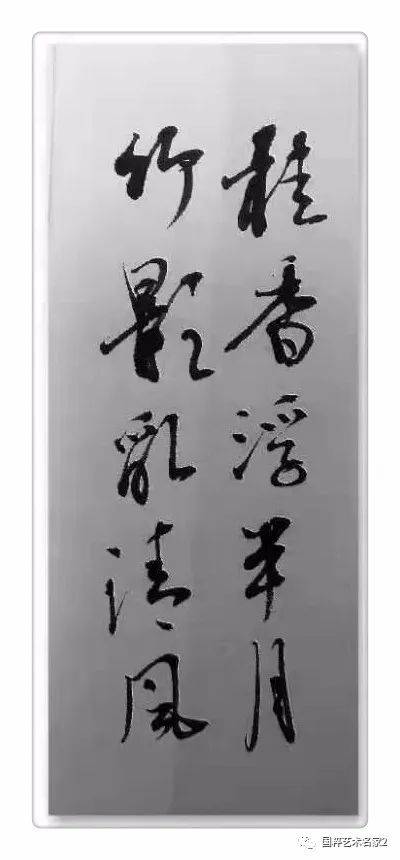 桂香浮半月
竹影亂清風
国粹艺术名家2